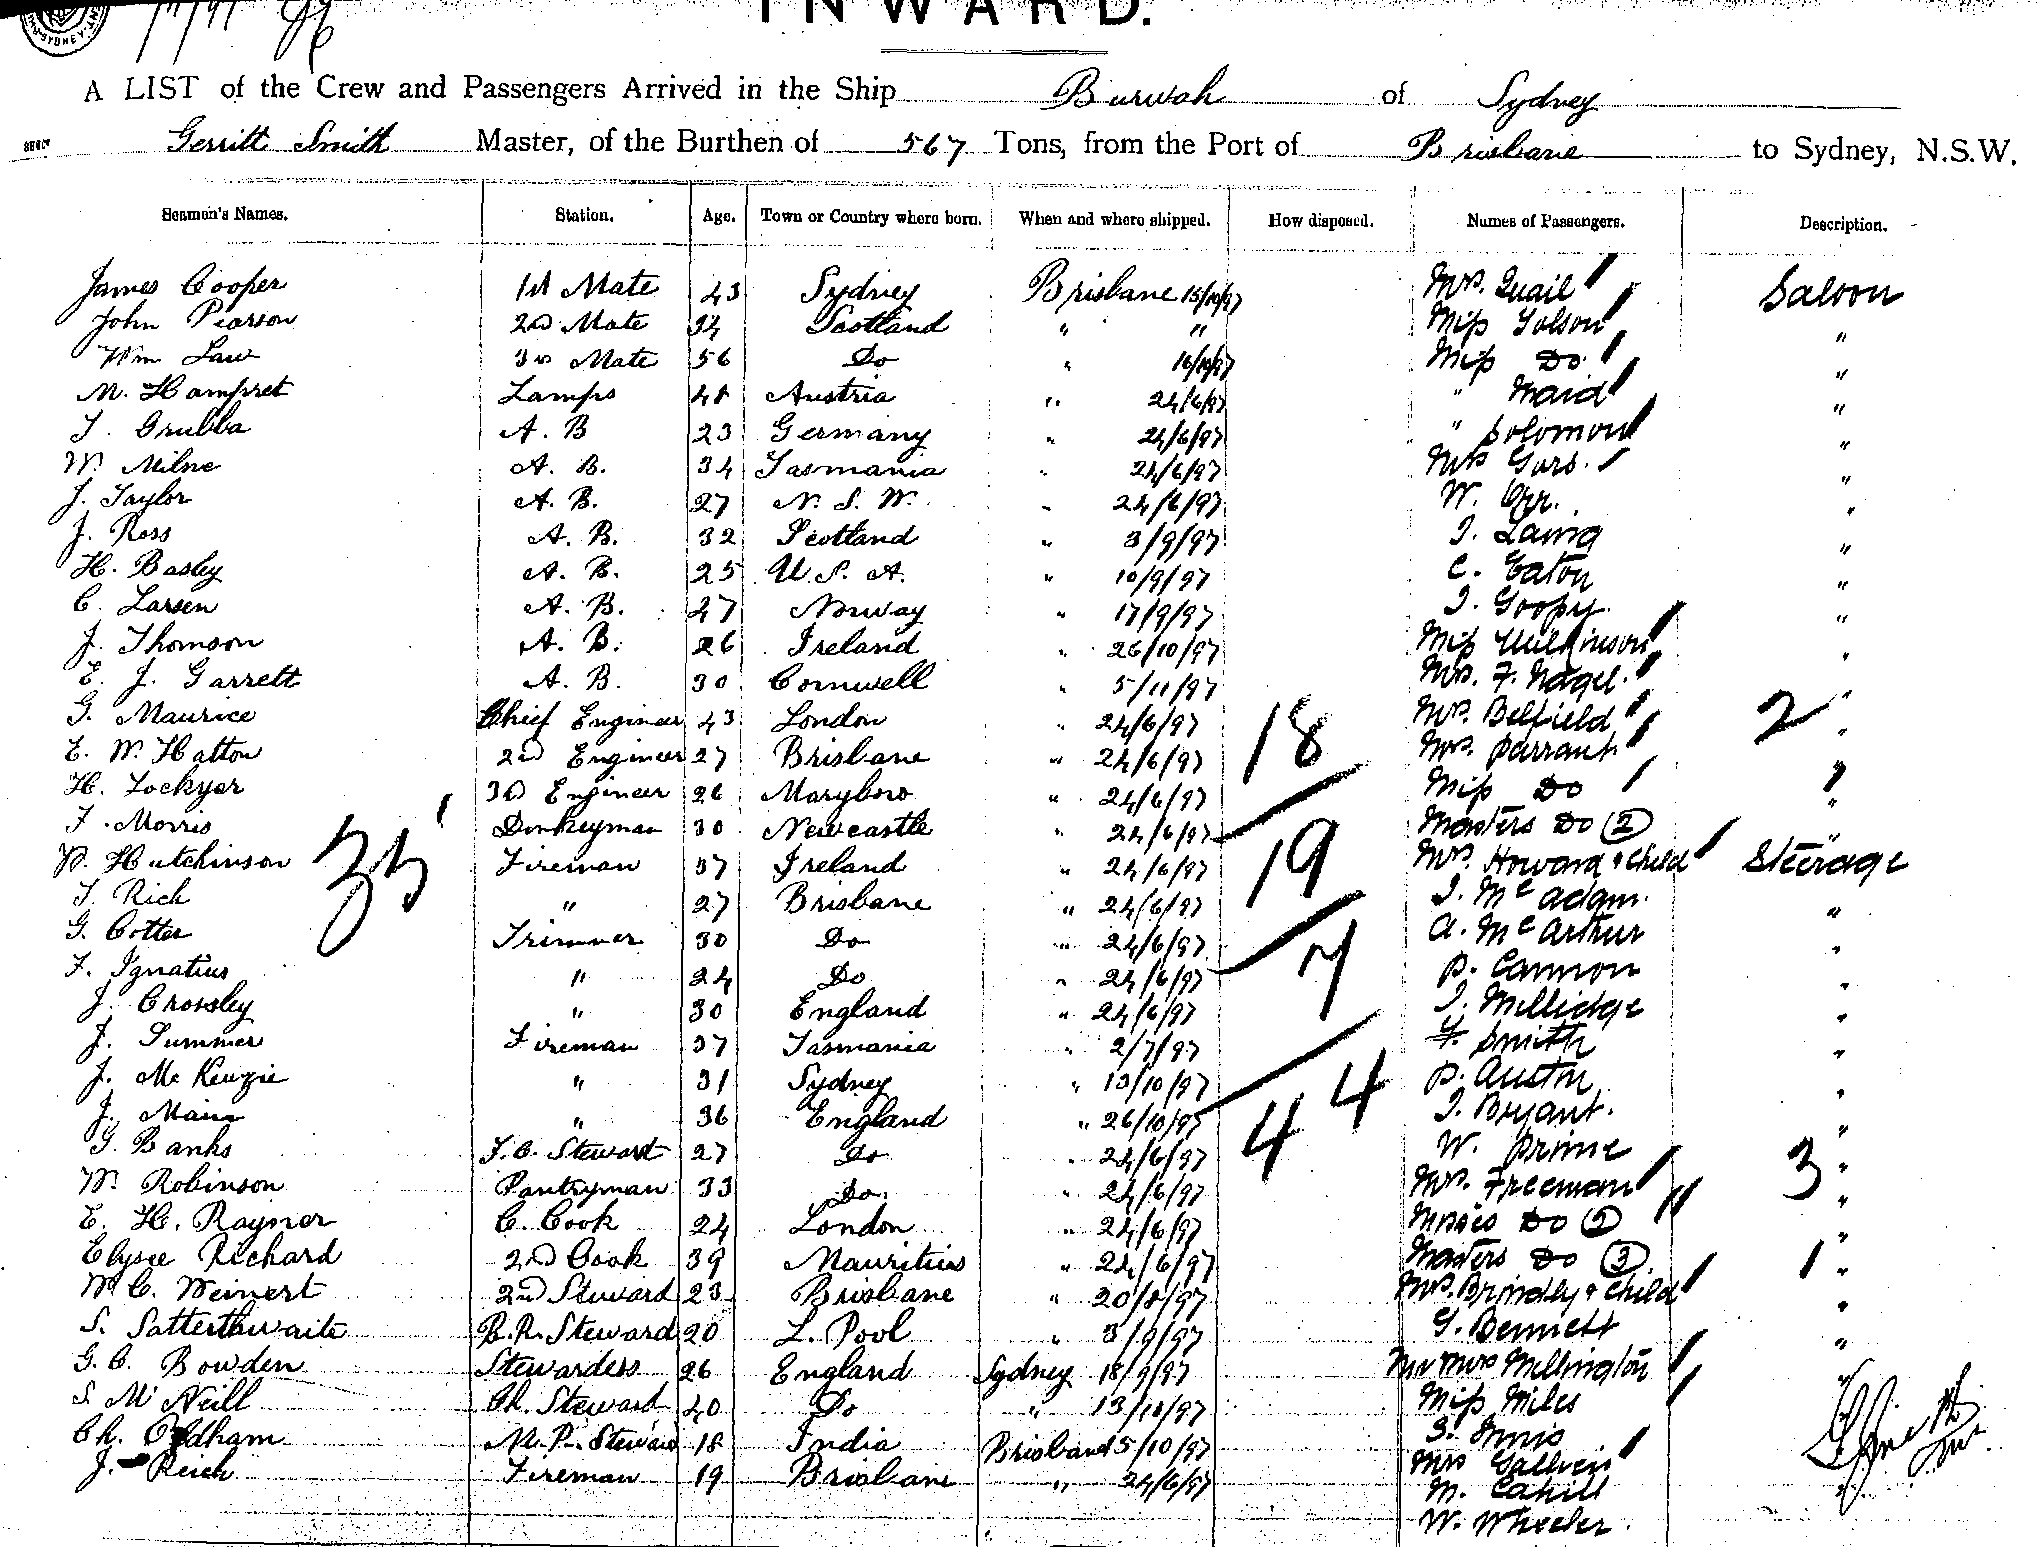 INWARD.
A LIST of the Crew and Passengers Arrived in the Ship Burwah of Sydney
Gerritt Smith Master, of the Burthen of 567 Tons, from the Port of Brisbane to Sydney, N.S.W.
Seamen's Names. Station. Age. Town or Country where born. When and where shipped. How disposed. Names of Passengers. Description.
James Cooper 1st Mate 43 Sydney Brisbane 15/10/97 Mrs. Quail Saloon
John Pearson 2nd Mate 34 Scotland " " Miss Tolson "
Wm Law 3rd Mate 56 Do " 16/10/97 Miss Do "
M. Hampret Lamps 48 Austria " 24/6/97 " Maid "
T. Grubba A. B 23 Germany " 24/6/97 " Solomon "
W. Milne A. B. 34 Tasmania " 24/6/97 Mrs "
J. Taylor A. B. 27 N. S. W. " 24/6/97 W. Orr. "
J. Ross A. B. 32 Scotland " 3/9/97 "
H. Basley A. B. 25 U. S. A. " 10/9/97 C. Eaton "
C. Larsen A. B. 27 Norway " 17/9/97 "
J. Thomson A. B. 26 Ireland " 26/10/97 Miss Wilkinson "
E. J. Garrett A. B. 30 Cornwell " 5/11/97 Mrs. F. Nagel. "
G. Maurice Chief Engineer 43 London " 24/6/97 18 Mrs. Belfield 2 "
E. W. Hatton 2nd Engineer 27 Brisbane " 24/6/97 Mrs. Parrant "
H. Lockyer 3d Engineer 26 Maryboro " 24/6/97 Miss Do "
F. Morris Donkeyman 30 Newcastle " 24/6/97 Masters Do 2 "
W. Hutchinson 35 Fireman 37 Ireland " 24/6/97 19 Mrs. Howard & Child Steerage
T. Rich " 27 Brisbane " 24/6/97 J. McAdam. "
G. Cotter Trimmer 30 Do " 24/6/97 A. McArthur
F. Ignatius " 24 Do " 24/6/97 7 P. Cannon "
J. Crossley " 30 England " 24/6/97 J. Millidge "
J. Summer Fireman 37 Tasmania " 2/7/97 F. Smith "
J. McKenzie " 31 Sydney " 13/10/97 44 P. Austin "
J. Main " 36 England " 26/10/97 J. Bryant. "
G. Banks F.C. Steward 27 Do " 24/6/97 W. Prime 3 "
W. Robinson Pantryman 33 Do " 24/6/97 Mrs. Freeman "
E. H. Raynor C. Cook 24 London " 24/6/97 Misses Do 2 "
Elysee Richard 2nd Cook 39 Mauritius " 24/6/97 Masters Do 3 1 "
W. C. Weinert 2nd Steward 23 Brisbane " 20/8/97 Mrs. Brindly & Child "
S. Satterthwaite B.R. Steward 20 L. Pool " 3/9/97 G. Bennett "
G. C. Bowden Stewardess 26 England Sydney 18/9/97 Mr Mrs Millington "
S. McNeill Ch. Steward 40 Do " 13/10/97 Miss Miles
Ch. Oldham M.R. Steward 18 India Brisbane 15/10/97
J. Reich Fireman 19 Brisbane " 24/6/97 Mrs
M. Cahill
W. Wheeler.